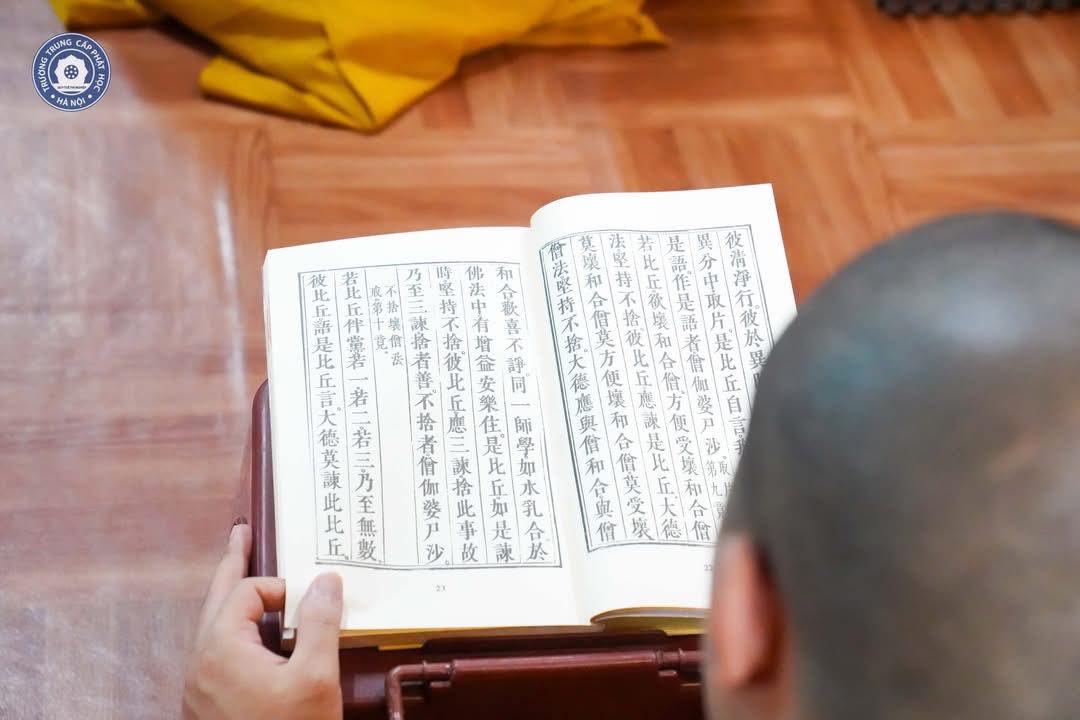 TRƯỜNG TRUNG CẤP PHẬT HỌC
DUY TUỆ THỊ NGHIỆP
HÀ NỘI
彼清淨行。彼於異
異分中取片。是比丘自言。我
是語。作是語者僧伽婆尸沙。取
第九竟
若比丘欲壞和合僧方便受壞和合僧
法堅持不捨彼比丘應諫是比丘大德
莫壞和合僧莫方便壞和合僧莫受壞
僧法堅持不捨。大德應與僧和合與僧
22
和合歡喜不諍。同一師學如水乳合於
佛法中有增益安樂住。是比丘如是諫
時堅持不捨。彼比丘應三諫捨此事故
乃至三諫捨者善。不捨者僧伽婆尸沙。
不捨壞僧法
戒。第十竟。
若比丘伴黨若一若二若三乃至無數。
彼比丘語是比丘言大德莫諫此比丘。
23